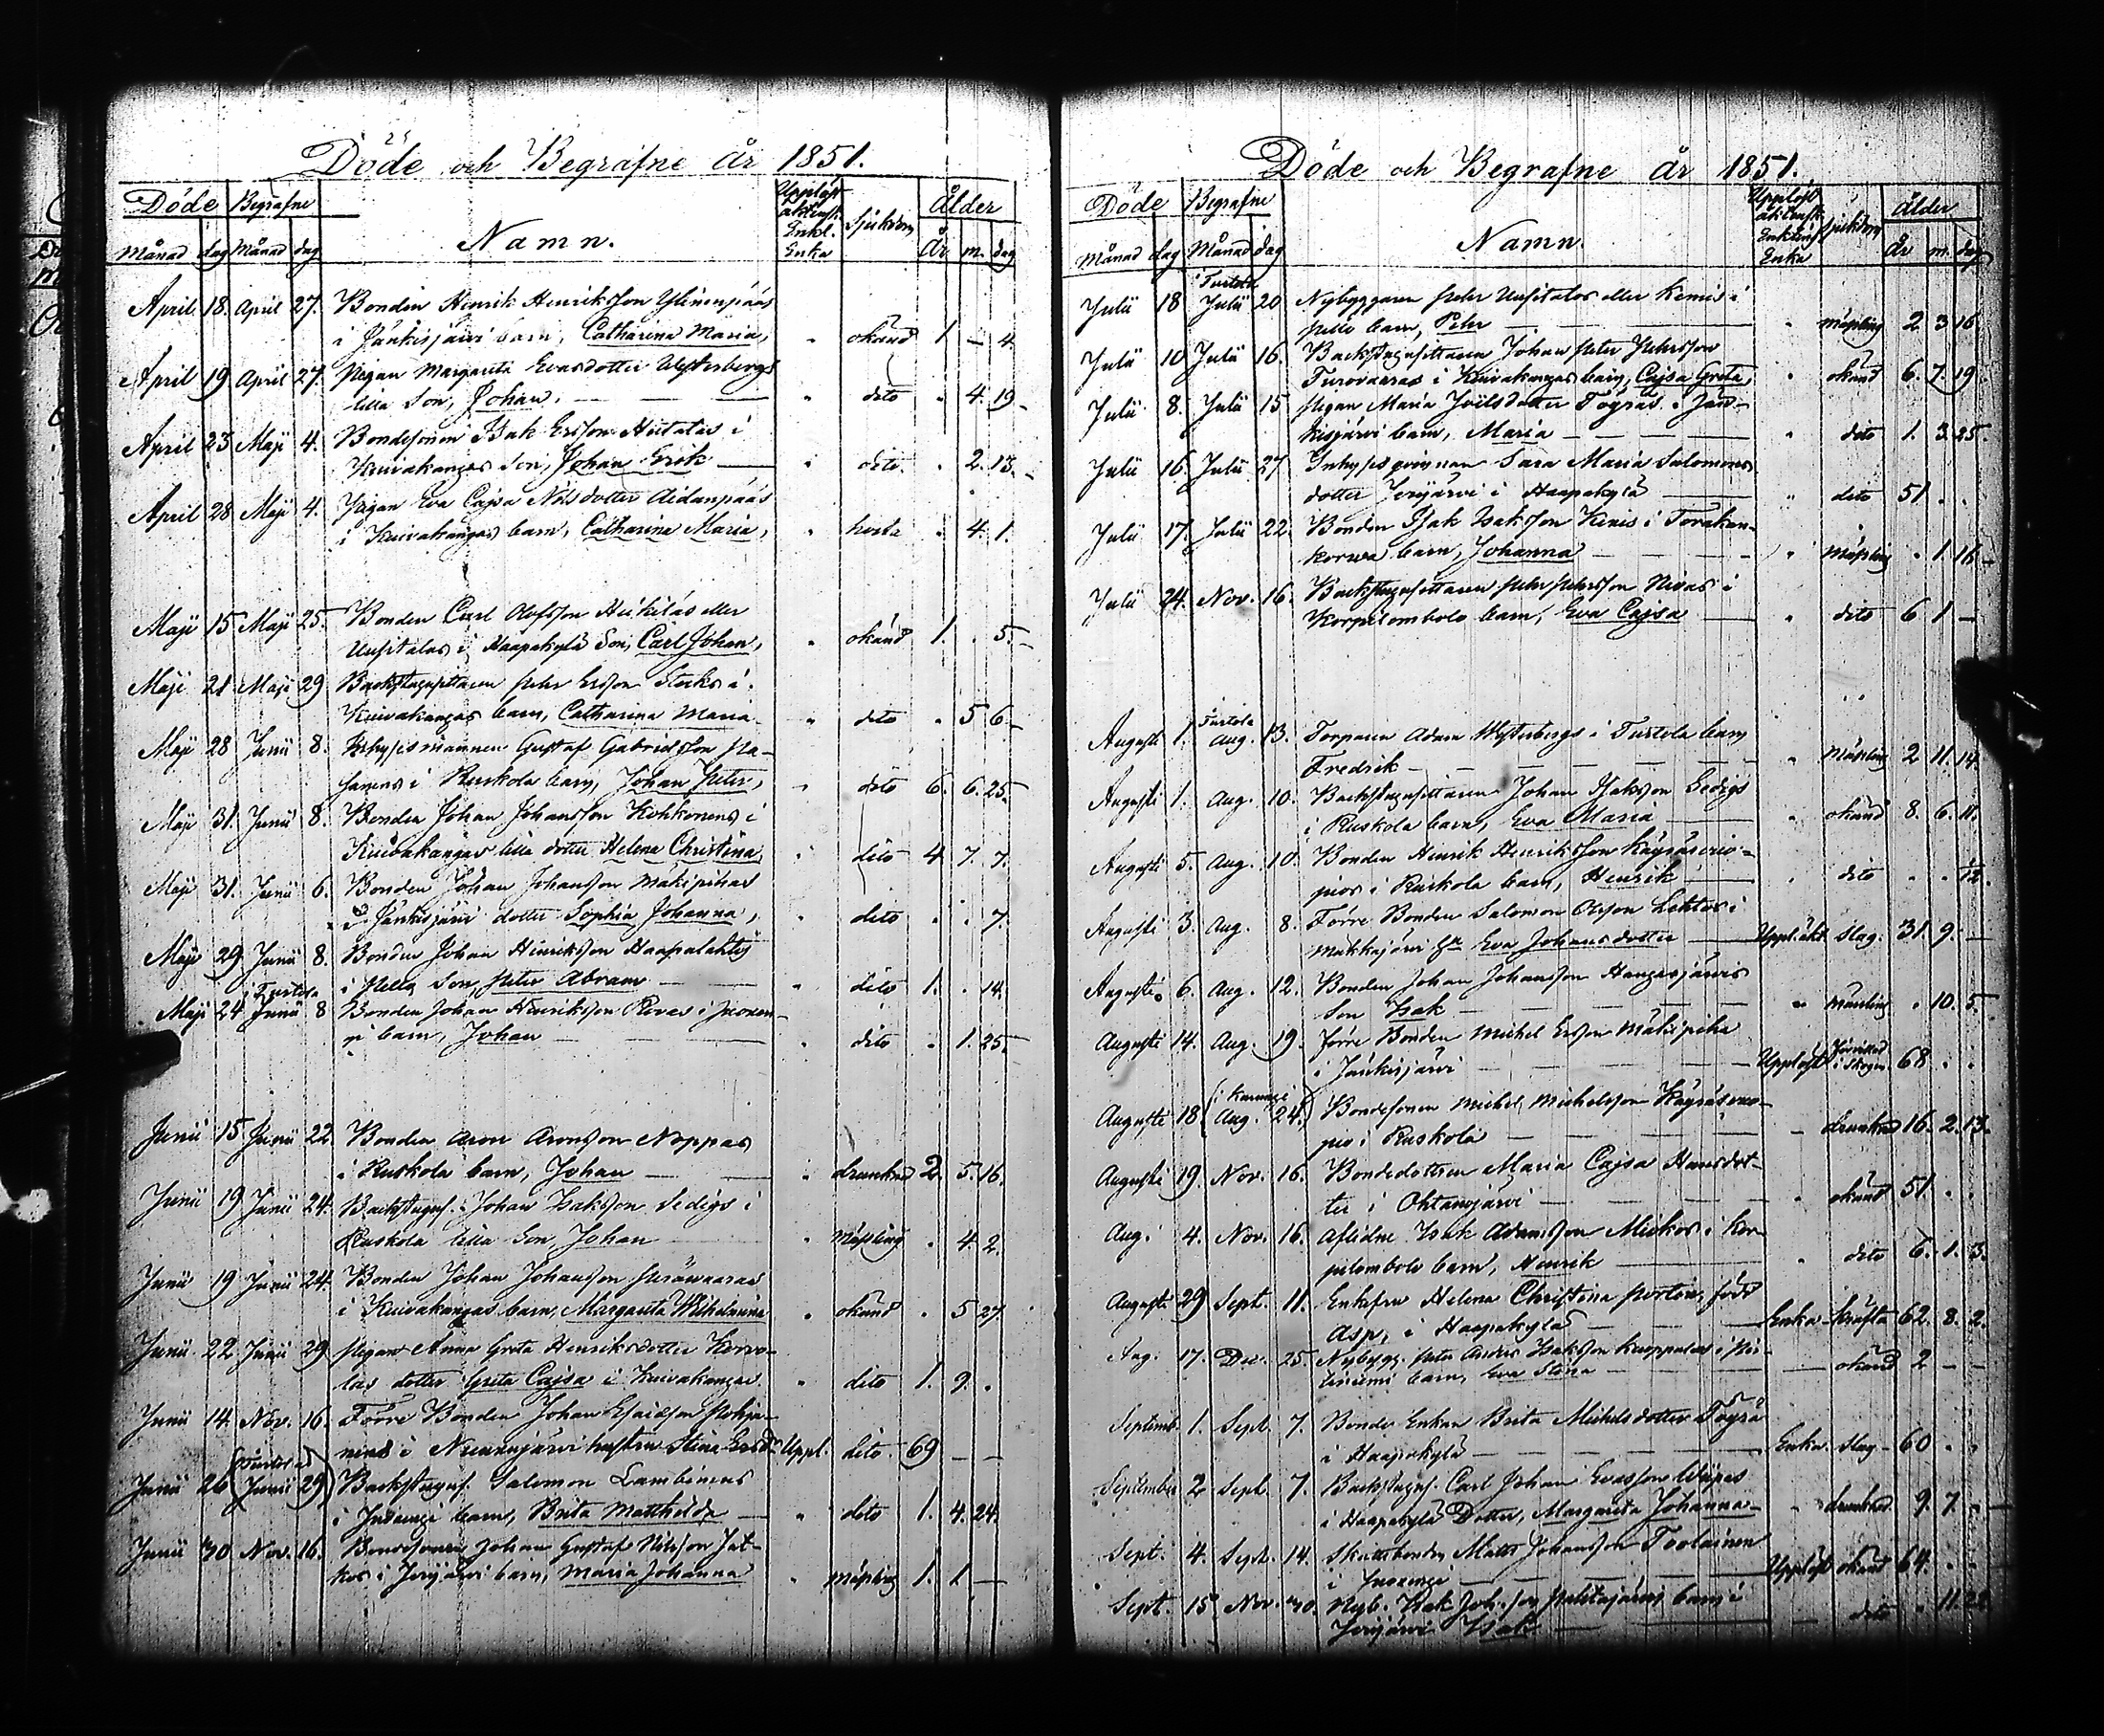 Döde och Begrafne år 1851.
Döde Begrafne Namn. Upplöst äktensk. Enkl. Enka Sjukdom Ålder
Månad dag Månad dag År m. dag
April 18. April 27. Bonden Henrik Henriksson Ylinenpääs
i Jänkisjärvi barn, Catharina Maria, " okänd 1 — 4.
April 19 April 27. Pigan Margareta Evasdotter Wästerbergs
lilla Son, Johan, — — " dito " 4. 19.
April 23 Maji 4. Bondesonen Isak Ersson Hietalas i
Kuivakangas Son, Johan Erik — " dito. " 2. 13.
April 28 Maji 4. Pigan Eva Cajsa Nilsdotter Aidanpääs
i Kuivakangas barn, Catharina Maria, " hosta " 4. 1.
Maji 15 Maji 25. Bonden Carl Olofsson Heikiläs eller
Uusitalos i Haapakylä Son, Carl Johan, " okänd 1. . 5.
Maji 21 Maji 29 Backstugusittaren Petter Ersson Stocks i
Kuivakangas barn, Catharina Maria " dito " 5 6
Maji 28 Junii 8. Inhysismannen Gustaf Gabrielsson
i Ruskola barn, Johan Peter, " dito 6. 6. 25.
Maji 31. Junii 8. Bonden Johan Johansson Kohkonens i
Kuivakangas lilla dotter Helena Christina " dito 4 7. 7.
Maji 31. Junii 6. Bonden Johan Johansson Mäkipihas
i Jänkisjärvi dotter Sophia Johanna, " dito . . 7.
Maji 29 Junii 8. Bonden Johan Henriksson Haapalahtis
i Pello Son, Peter Abram — " dito 1. . 14.
i Turtola
Maji 24 Junii 8 Bonden Johan Henriksson Rovas i
barn, Johan — " dito " 1. 25.
Junii 15 Junii 22. Bonden Aron Aronsson Noppas
i Ruskola barn, Johan — " drunknad 2. 5. 16.
Junii 19 Junii 24. Backstuguf. Johan Isaksson Sedigs i
Ruskola lilla Son Johan " Mässling " 4. 2.
Junii 19 Junii 24. Bonden Johan Johansson Perävaaras
i Kuivakangas barn, Margareta Wilhelmina " okänd " 5 27.
Junii 22 Junii 29 Pigan Anna Greta Henriksdotter Korvo-
las dotter Greta Cajsa i Kuivakangas. " dito 1. 9. .
Junii 14. Nov. 16. Förre Bonden Johan Esaiesson Pohja-
nens i hustru Stina Ersd. Uppl. dito 69 — —
Junii 26 (Junii 29) Backstuguf. Salomon Lambinens
i barn, Brita Matthilda — " dito 1. 4. 24.
Junii 30 Nov. 16. Bondsonen Johan Gustaf Nilsson Jat-
kos i Jerijärvi barn, Maria Johanna " mässling 1. 1 —
Döde och Begrafne år 1851.
Döde Begrafne Namn. Upplöst äktensk. Enkling Enka Sjukdom Ålder
Månad dag Månad dag År m. dag
i Turtola
Julii 18 Julii 20 Nybyggaren Petter Uusitalos eller Kemis i
Pello barn, Petter — " mässling 2 3 16
Julii 10 Julii 16. Backstugusittaren Johan Peter Pehrsson
Turovaaras i Kuivakangas barn, Cajsa Greta, " okänd 6. 7 19.
Julii 8. Julii 15 Pigan Maria Joelsdotter Töyräs i Jän-
kisjärvi barn, Maria — — " dito 1. 3. 25.
Julii 16. Julii 27 Inhysesqvinnan Sara Maria Salomons
dotter Jerijärvi i Haapakylä — " dito 51 . .
Julii 17. Julii 22. Bonden Isak Isaksson Kenis i Torakan-
korwa barn, Johanna — " Mässling " 1. 16
Julii 24. Nov. 16. Backstugusittaren Petter Pehrsson Nivas i
Korpilombolo barn, Eva Cajsa — " dito 6 1 —
Turtola
Augusti 1. Aug. 13. Torparen Adam Wästerbergs i Turtola barn
Fredrik — — " Mässling 2 11. 14.
Augusti 1. Aug. 10. Backstugusittaren Johan Isaksson Sedigs
i Ruskola barn, Eva Maria — " okänd 8. 6. 11.
Augusti 5. Aug. 10. Bonden Henrik Henriksson Käyräsvuo-
pios i Ruskola barn, Henrik — " dito . . 1/2.
Augusti 3. Aug. 8. Förre Bonden Salomon Olsson Lehtos i
hu Eva Johansdotter — Upplöst Slag. 31. 9. —
Augusti 6. Aug. 12. Bonden Johan Johansson Hangasjärvis
Son Isak — — " Mässling " 10. 5.
Augusti 14. Aug. 19. Förre Bonden Michel Ersson Mäkipiha
i Jänkisjärvi — Upplöst Förvillad i Skogen 68 . .
i Karungi
Augusti 18 (Aug. 24.) Bondesonen Michel Michelsson Käyräsvuo-
pio i Ruskola — — drunknad 16. 2. 13.
Augusti 19. Nov. 16. Bondedottren Maria Cajsa Hansdot-
ter i Ohtanajärvi — " okänd 51. . .
Aug. 4. Nov. 16. Aflidne Isak Adamsson Miekos i Kor-
pilombolo barn, Henrik — " dito 6. 1. 3.
Augusti 29 Sept. 11. Enkefru Helena Christina Portin, född
Asp, i Haapakylä — Enka Kräfta 62. 8. 2.
Aug. 17. Dec. 25. Nybygg. Peter Anders Isaksson
barn, Eva Stina — — okänd 2 — —
Septemb. 1. Sept. 7. Bonde Enkan Brita Michelsdotter Töyrä
i Haapakylä — Enka Slag 60 . .
September 2 Sept. 7. Backstuguf. Carl Johan Evasson
i Haapakylä Dotter, Margareta Johanna — " drunknad 9. 7. .
Sept. 4. Sept. 14. Skattebonden Matts Johansson Toolainen
i — Upplöst okänd 64. . .
Sept. 15 Nov. 30. Nyb. Isak Joh.son barn i
Jerijärvi Isak — — dito " 11. 22.